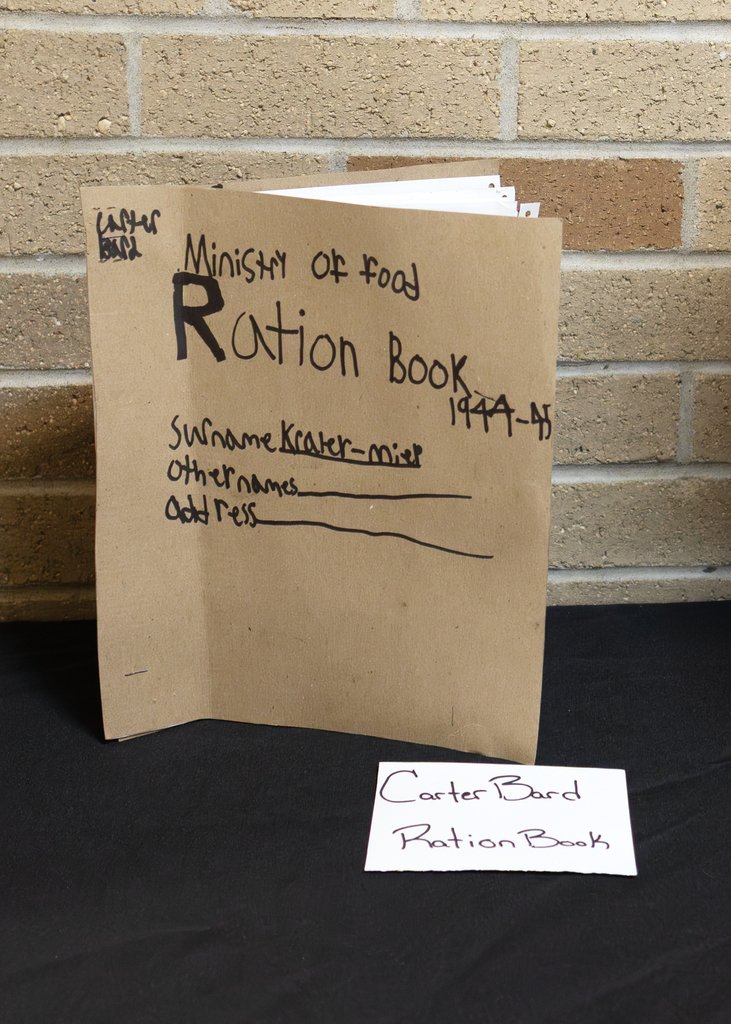 Carter
Bard
Ministry of food
Ration Book
1944-45
Surname Krater-mier
other names
address
Carter Bard
Ration Book